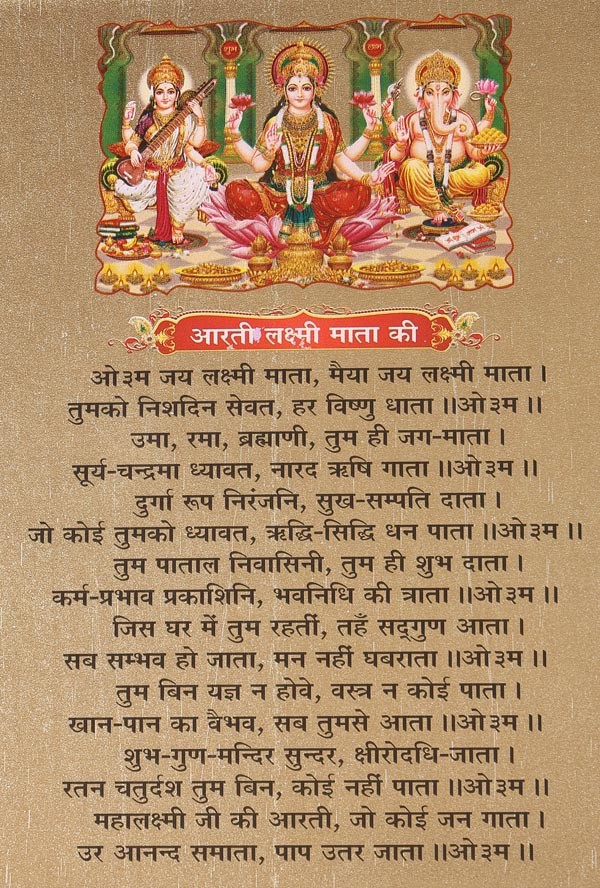 शुभ लाभ
आरती लक्ष्मी माता की
ओ३म जय लक्ष्मी माता, मैया जय लक्ष्मी माता ।
तुमको निशदिन सेवत, हर विष्णु धाता ॥ओ३म॥
उमा, रमा, ब्रह्माणी, तुम ही जग-माता ।
सूर्य-चन्द्रमा ध्यावत, नारद ऋषि गाता ॥ओ३म॥
दुर्गा रूप निरंजनि, सुख-सम्पति दाता ।
जो कोई तुमको ध्यावत, ऋद्धि-सिद्धि धन पाता ॥ओ३म॥
तुम पाताल निवासिनी, तुम ही शुभ दाता ।
कर्म-प्रभाव प्रकाशिनि, भवनिधि की त्राता ॥ओ३म॥
जिस घर में तुम रहतीं, तहँ सद्‌गुण आता ।
सब सम्भव हो जाता, मन नहीं घबराता ॥ओ३म॥
तुम बिन यज्ञ न होवे, वस्त्र न कोई पाता ।
खान-पान का वैभव, सब तुमसे आता ॥ओ३म॥
शुभ-गुण-मन्दिर सुन्दर, क्षीरोदधि-जाता ।
रतन चतुर्दश तुम बिन, कोई नहीं पाता ॥ओ३म॥
महालक्ष्मी जी की आरती, जो कोई जन गाता ।
उर आनन्द समाता, पाप उतर जाता ॥ओ३म॥